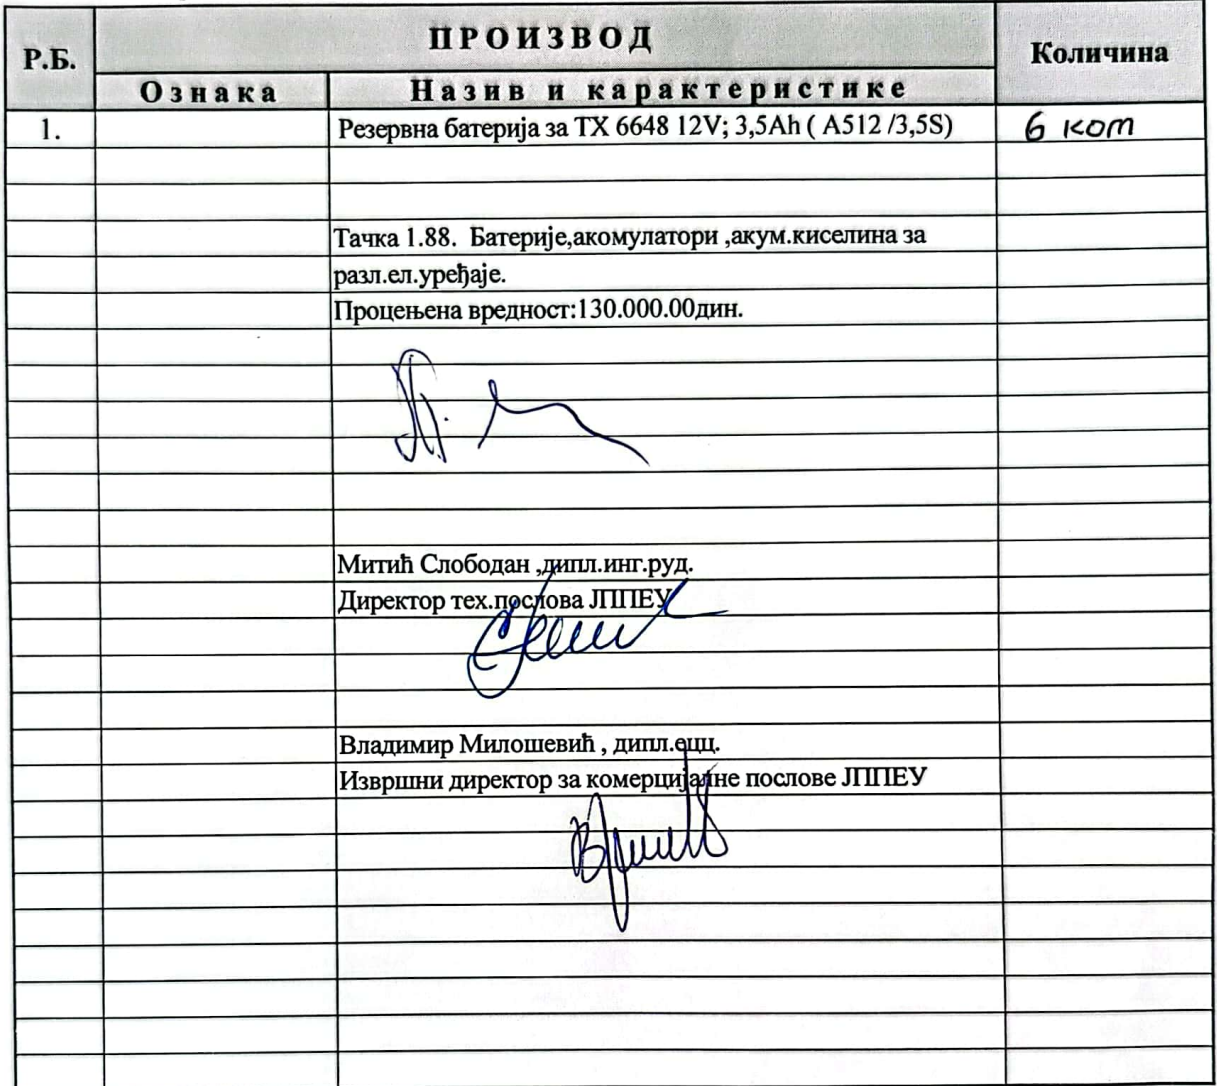 Р.Б.
ПРОИЗВОД
Количина
Ознака
Назив и карактеристике
1.
Резервна батерија за ТХ 6648 12V; 3,5Ah ( А512 /3,5S)
6 ком
Тачка 1.88. Батерије,акомулатори ,акум.киселина за
разл.ел.уређаје.
Процењена вредност:130.000.00дин.
Митић Слободан ,дипл.инг.руд.
Директор тех.послова ЈППЕУ
Владимир Милошевић , дипл.ецц.
Извршни директор за комерцијалне послове ЈППЕУ